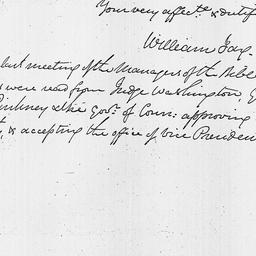 Your very affect.te & dutif
William Jay.
last meeting of the Managers of the Bible
were read from Judge Washington, G
Pinkney & the Gov.r of Conn: approving
& accepting the office of Vice Presiden